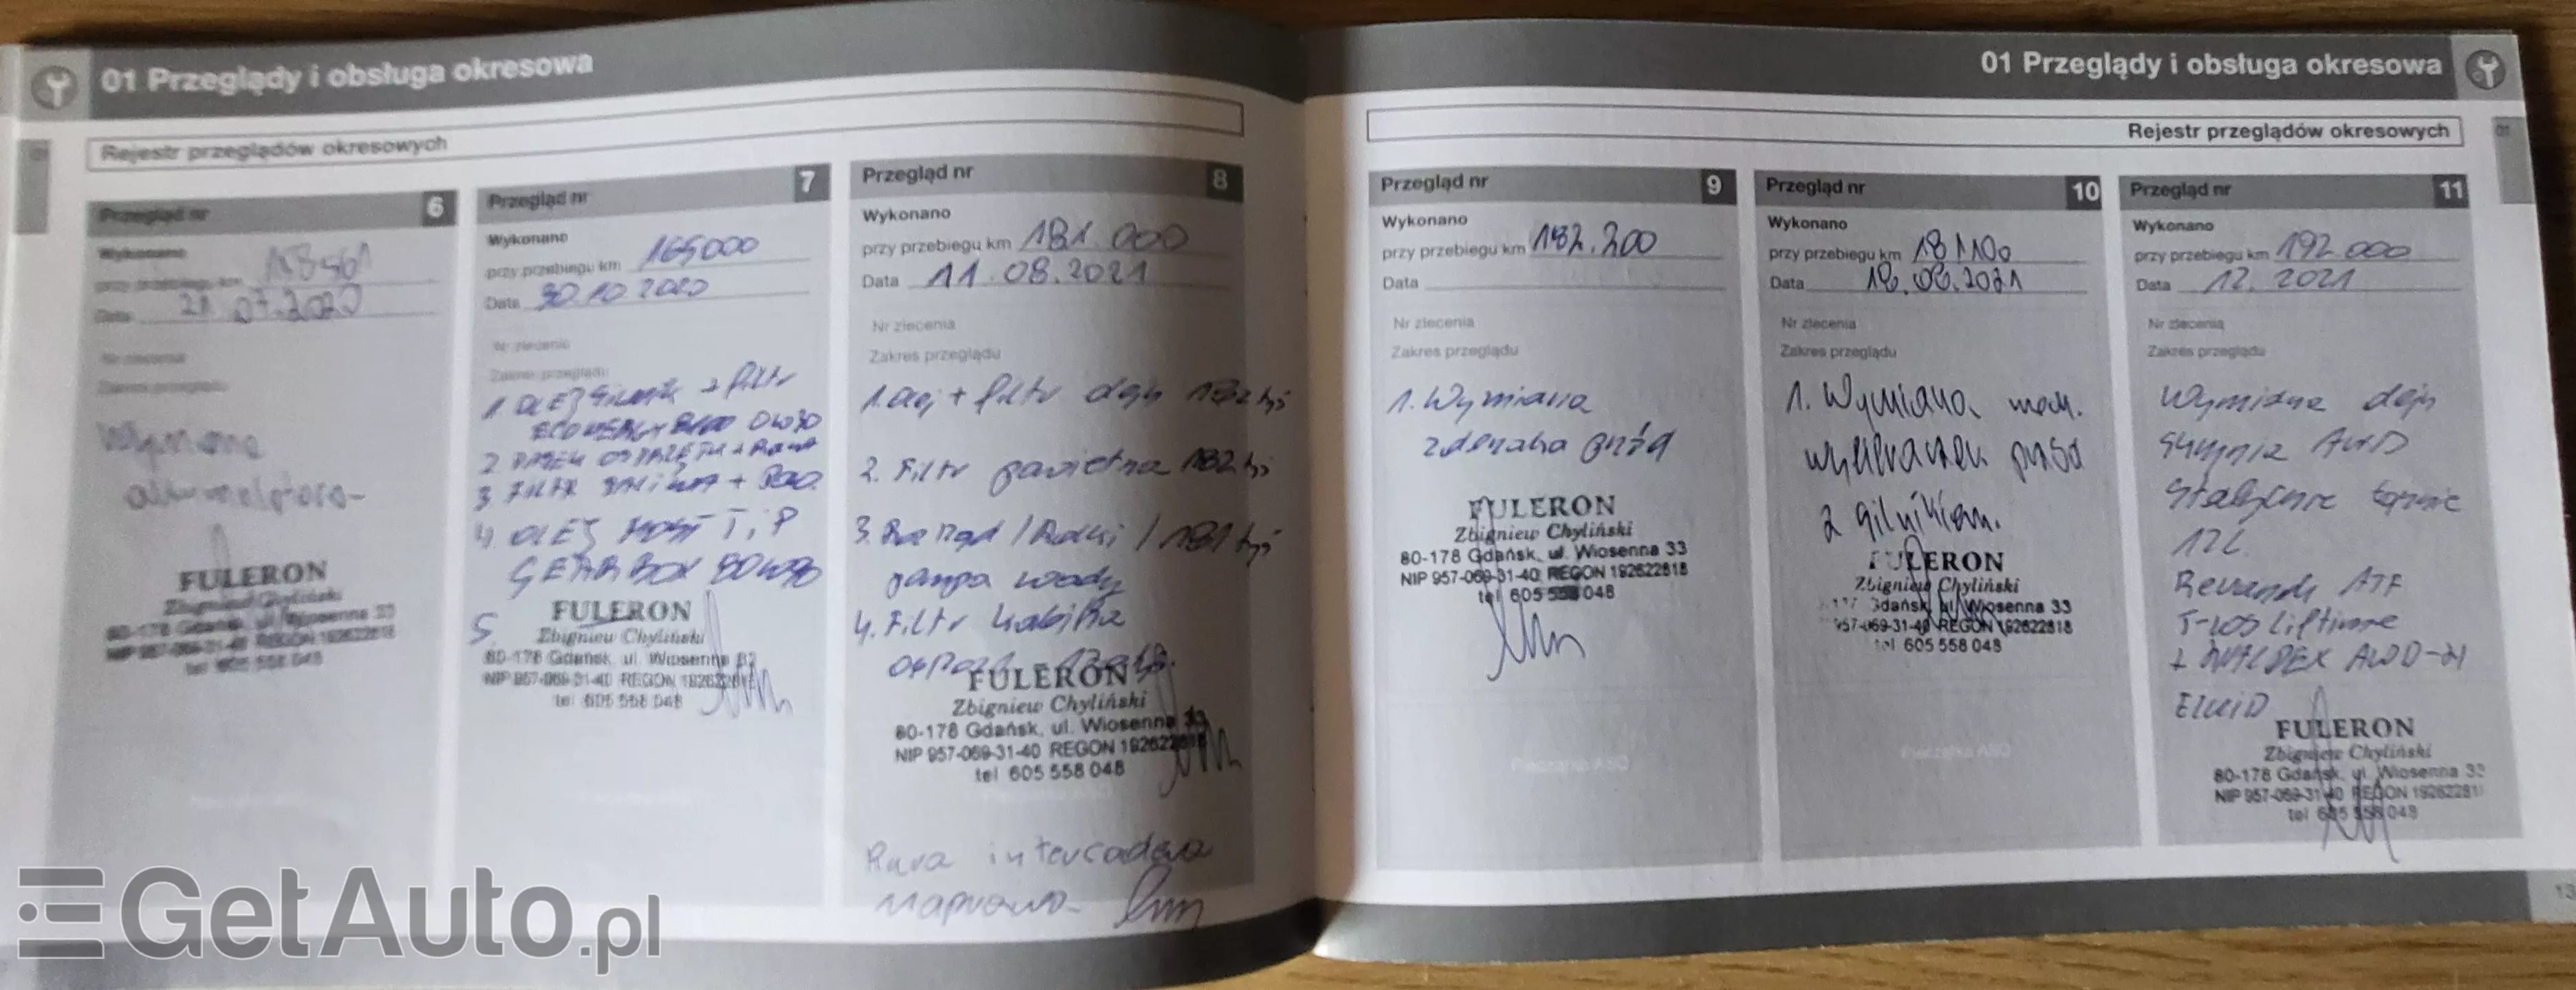 01 Przeglądy i obsługa okresowa
Rejestr przeglądów okresowych
Przegląd nr 6
Wykonano
przy przebiegu km
Data 21 07.2020
Nr zlecenia
Zakres przeglądu
Wymiana
FULERON
Zbigniew Chyliński
80-178 Gdańsk, ul. Wiosenna 33
NIP 957-069-31-40 REGON 192622818
tel 605 558 048
Przegląd nr 7
Wykonano
przy przebiegu km 165000
Data 30.10 2020
Nr zlecenia
Zakres przeglądu
1. OLEJ SILNIK + filtr
0W30
2. PASEK OSPRZĘTU +
3 FILTR
4. OLEJ MOST T i P
GEAR BOX 80W90
5.
FULERON
Zbigniew Chyliński
80-178 Gdańsk, ul. Wiosenna 33
NIP 957-069-31-40 REGON 192622818
tel 605 558 048
Przegląd nr 8
Wykonano
przy przebiegu km 181.000
Data 11.08.2021
Nr zlecenia
Zakres przeglądu
1. Olej + filtr oleju 182 tyś
2. Filtr powietrza 182 tyś
3. Rozrząd / Rolki / 181 tyś
pompa wody
4. Filtr kabina
FULERON
Zbigniew Chyliński
80-178 Gdańsk, ul. Wiosenna 33
NIP 957-069-31-40 REGON 192622818
tel 605 558 048
Rura intercoolera
naprawa
01 Przeglądy i obsługa okresowa
Rejestr przeglądów okresowych
Przegląd nr 9
Wykonano
przy przebiegu km 182.200
Data
Nr zlecenia
Zakres przeglądu
1. Wymiana
zderzaka przód
FULERON
Zbigniew Chyliński
80-178 Gdańsk, ul. Wiosenna 33
NIP 957-069-31-40 REGON 192622818
tel 605 558 048
Pieczątka ASO
Przegląd nr 10
Wykonano
przy przebiegu km 181100
Data 18.08.2021
Nr zlecenia
Zakres przeglądu
1. Wymiana mech.
wycieraczek przód
z silnikiem.
FULERON
Zbigniew Chyliński
Gdańsk, ul. Wiosenna 33
957-069-31-40 REGON 192622818
tel 605 558 048
Pieczątka ASO
Przegląd nr 11
Wykonano
przy przebiegu km 192.000
Data 12. 2021
Nr zlecenia
Zakres przeglądu
Wymiana oleju
skrzynia AWD
12L
Revanol ATF
T-WS Lifetime
AWD-H
FLUID
FULERON
Zbigniew Chyliński
80-178 Gdańsk, ul. Wiosenna 33
NIP 957-069-31-40 REGON 19262281
tel 605 558 048
13
GetAuto.pl